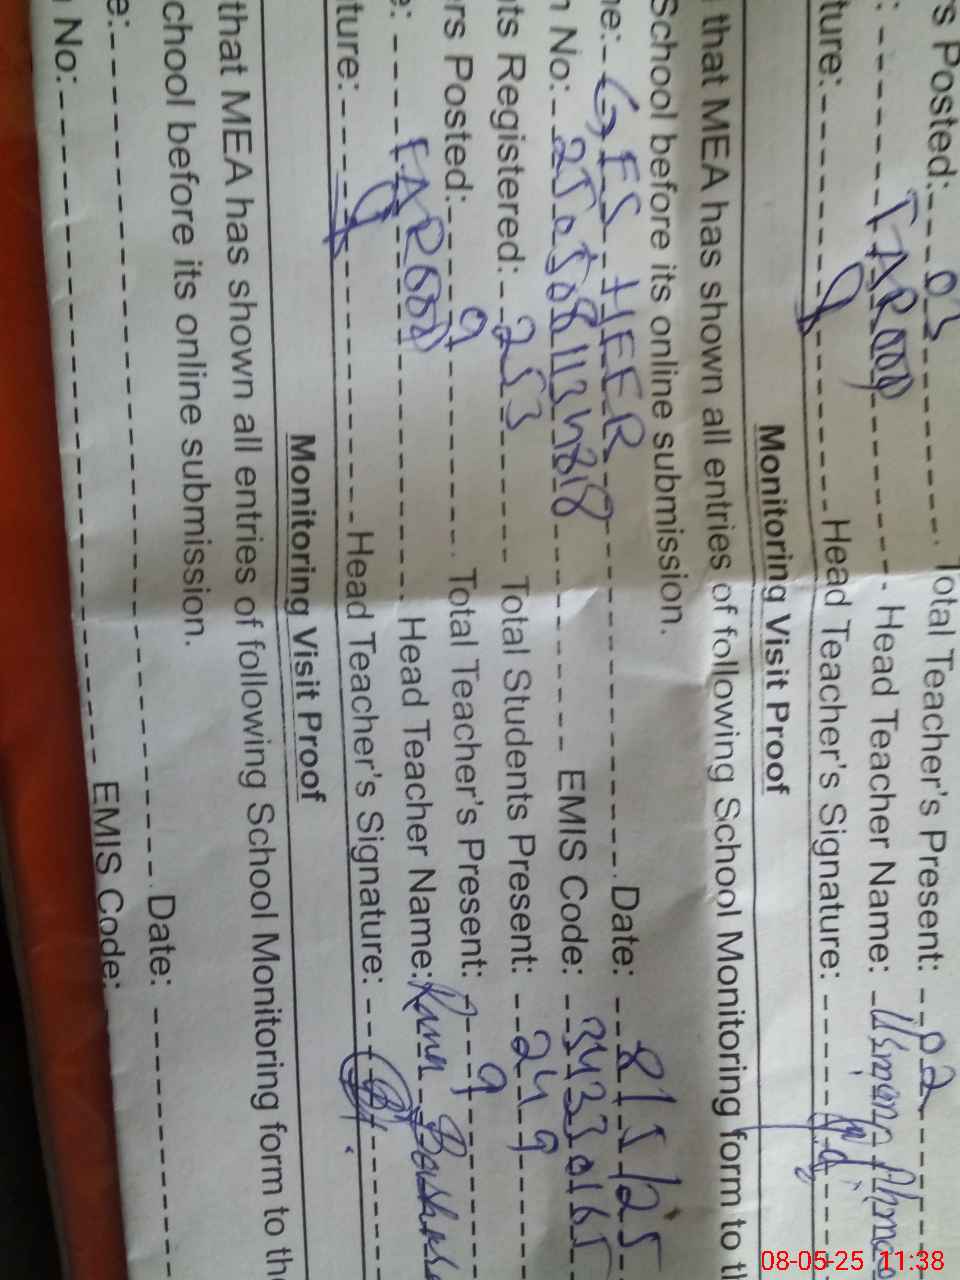 rs Posted: 03 Total Teacher's Present: 02
: FAROOQ Head Teacher Name: Usman Ahmad
ture: Head Teacher's Signature:
Monitoring Visit Proof
that MEA has shown all entries of following School Monitoring form to th
School before its online submission.
ne: GES HEER Date: 8/5/25
n No: EMIS Code: 34330165
ts Registered: 253 Total Students Present: 249
ers Posted: 9 Total Teacher's Present: 9
e: FAROOQ Head Teacher Name:
ture: Head Teacher's Signature:
Monitoring Visit Proof
that MEA has shown all entries of following School Monitoring form to the
chool before its online submission.
e: Date:
n No: EMIS Code:
08-05-25 11:38